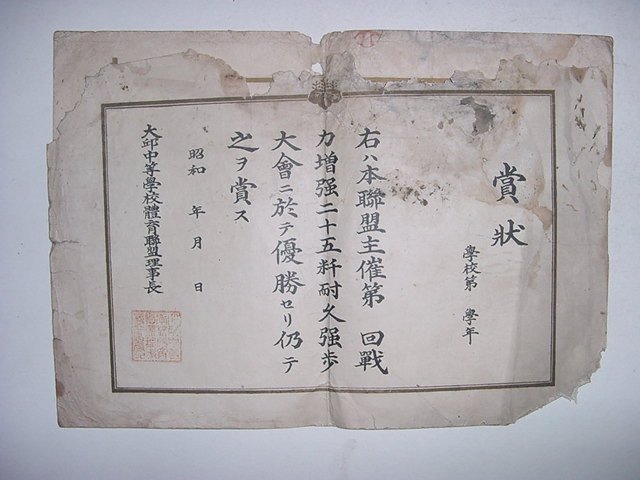 賞狀
學校第　學年
右ハ本聯盟主催第　回戰
力增强二十五粁耐久强步
大會ニ於テ優勝セリ仍テ
之ヲ賞ス
昭和　年　月　日
大邱中等學校體育聯盟理事長